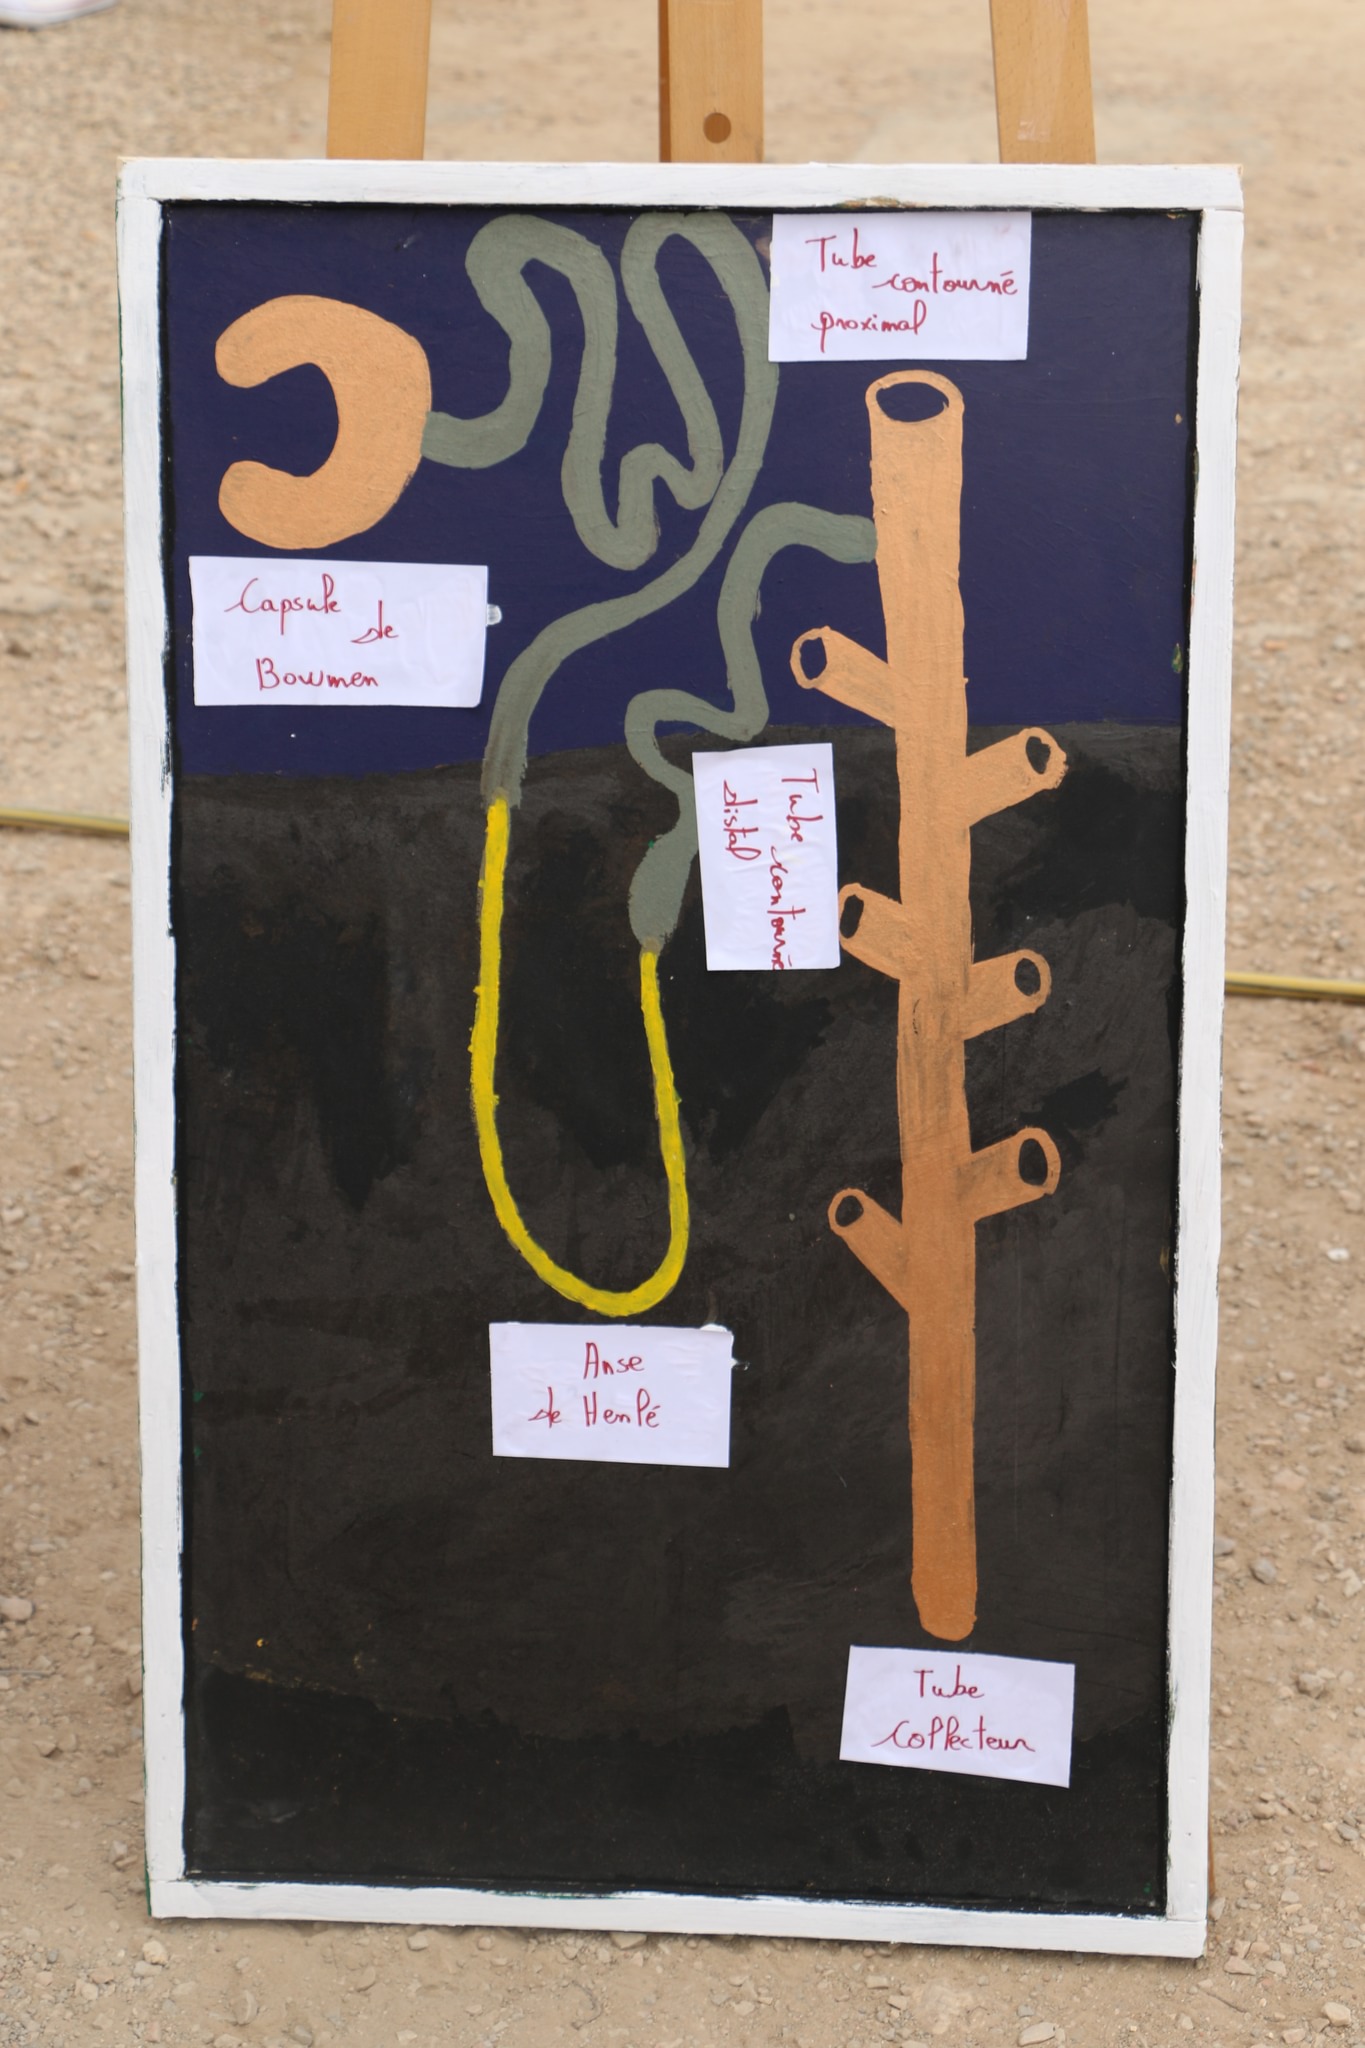 Tube
contourné
proximal
Capsule
de
Bowmen
Tube contourné
distal
Anse
de Henlé
Tube
Collecteur